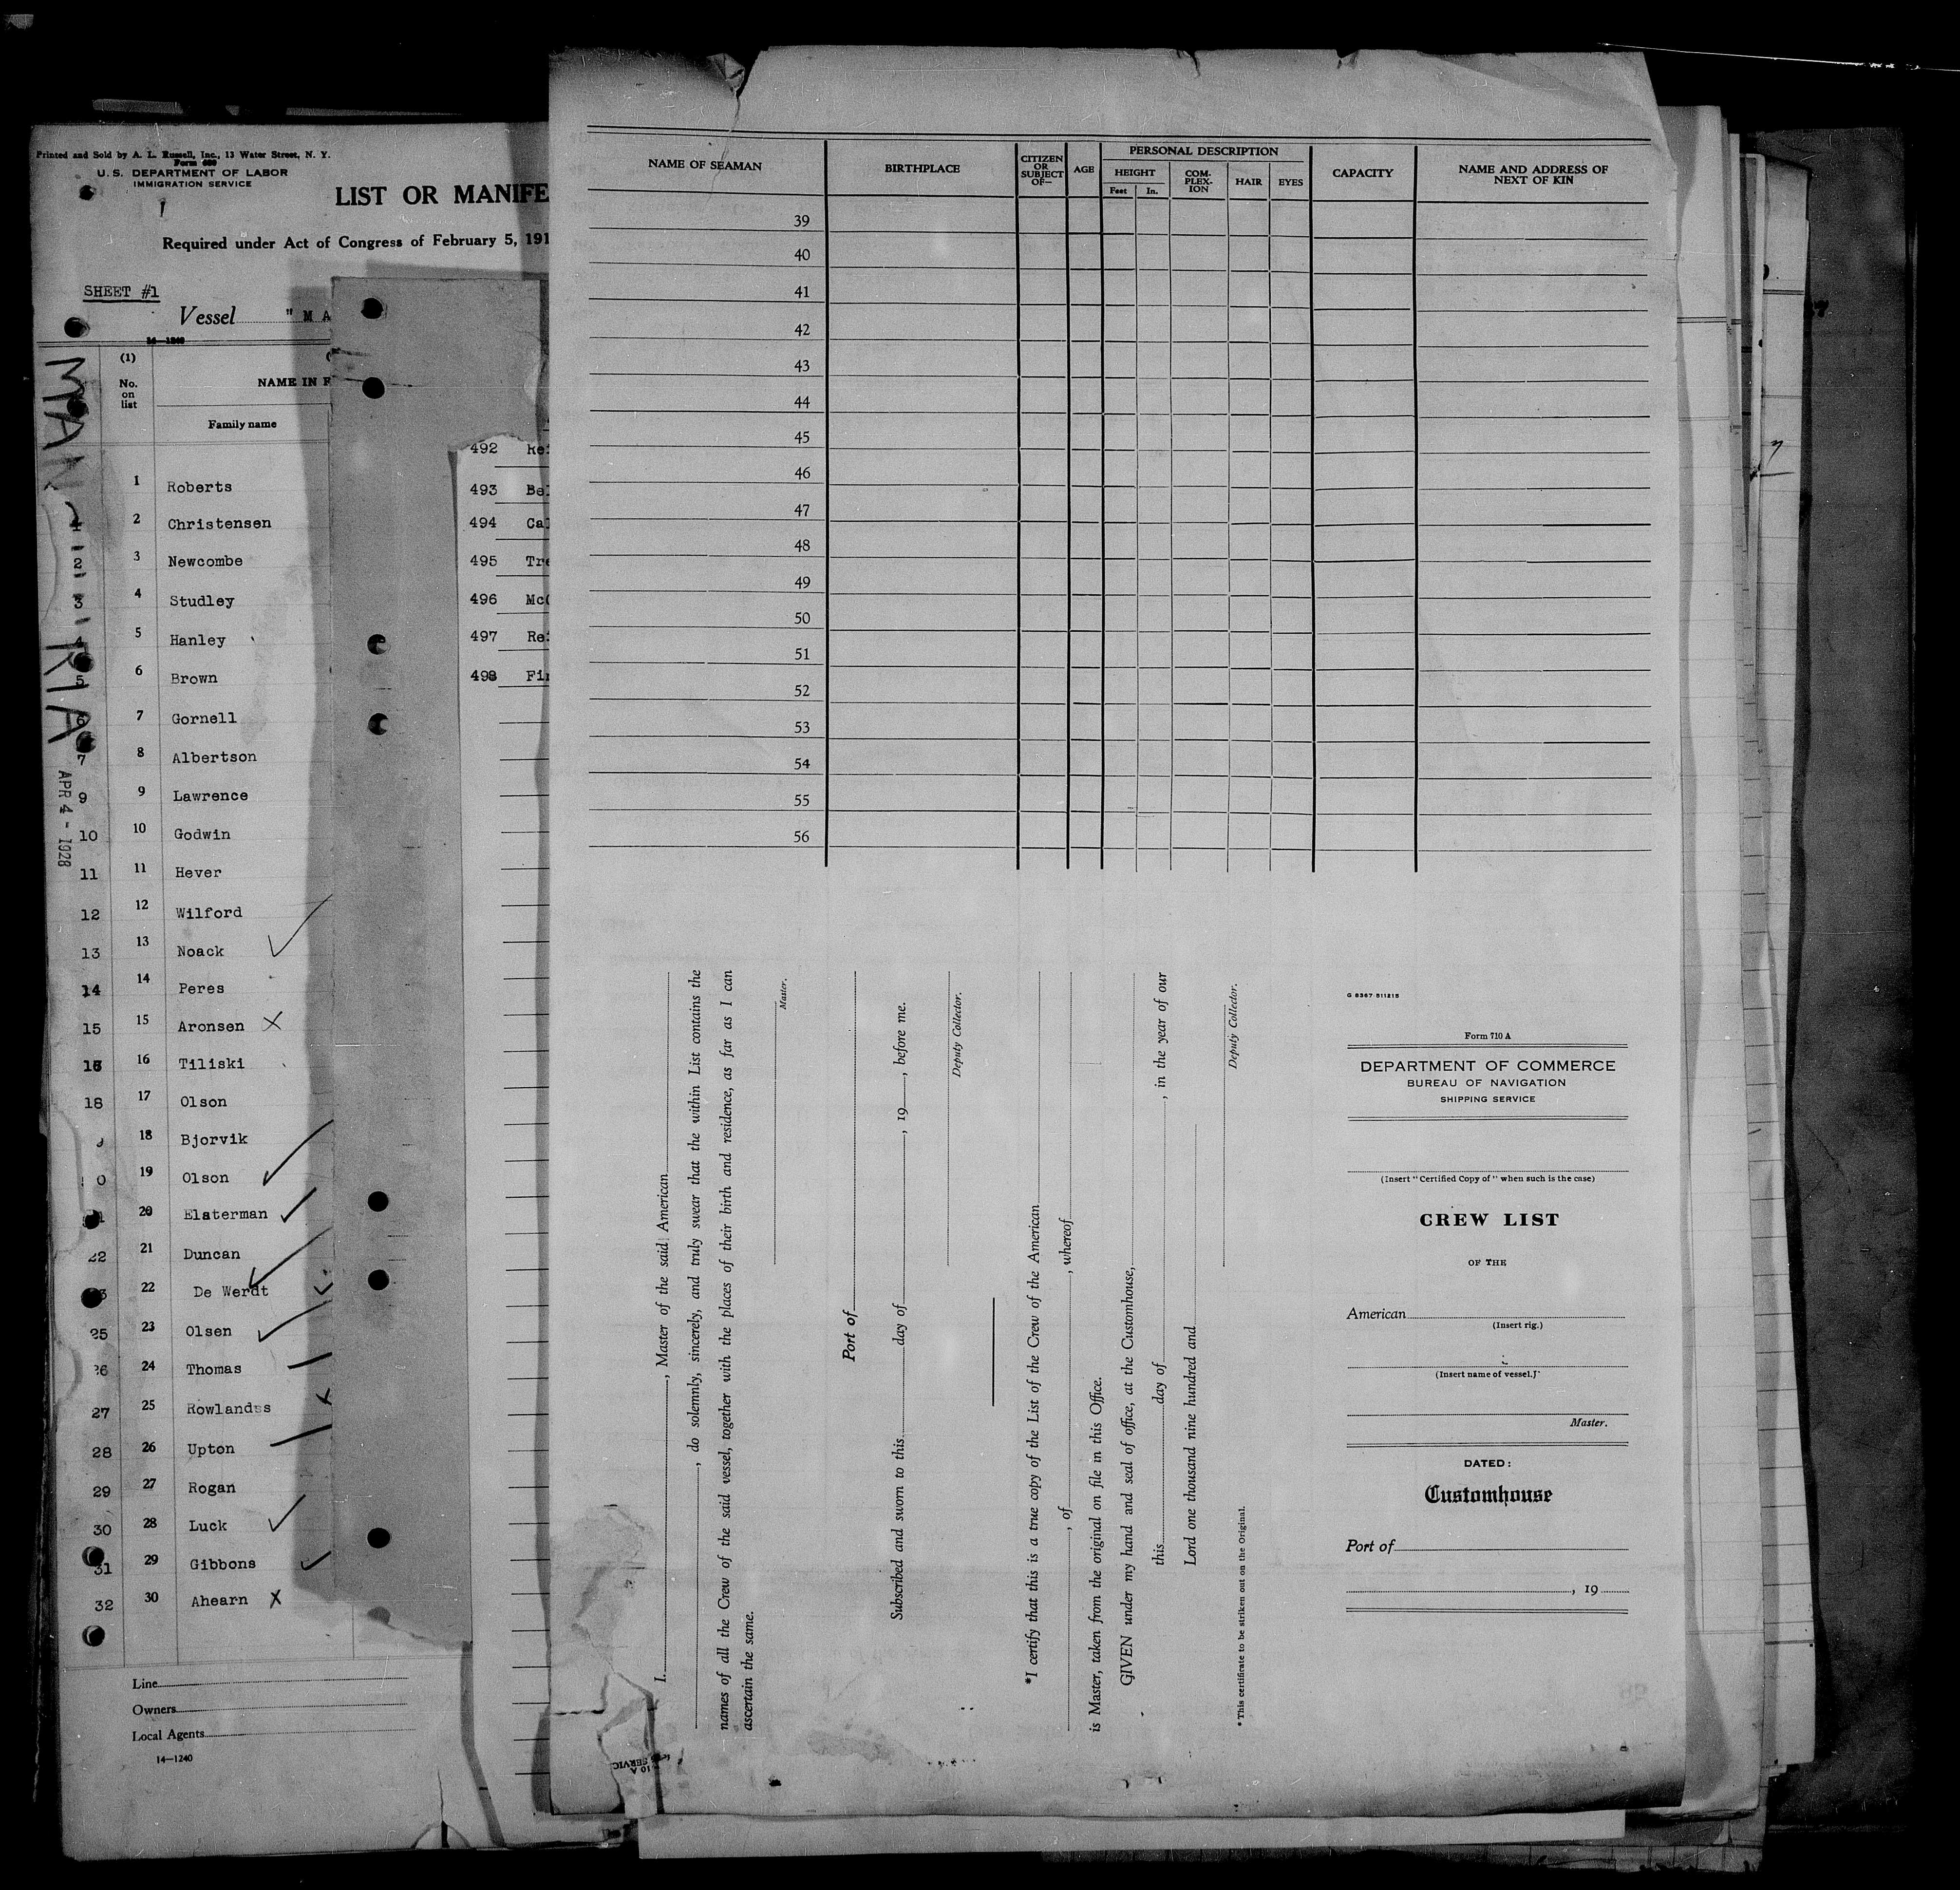 Printed and Sold by A. L. Russell, Inc., 13 Water Street, N. Y.
U. S. DEPARTMENT OF LABOR
IMMIGRATION SERVICE
LIST OR MANIFE
Required under Act of Congress of February 5, 191
SHEET #1
Vessel " M A
14—1240
(1)
No. on list
NAME IN F
Family name
MAN
RIA
APR 4 - 1928
1 Roberts
2 Christensen
3 Newcombe
4 Studley
5 Hanley
6 Brown
7 Gornell
8 Albertson
9 9 Lawrence
10 10 Godwin
11 11 Hever
12 12 Wilford
13 13 Noack
14 14 Peres
15 15 Aronsen
16 Tiliski
18 17 Olson
18 Bjorvik
19 Olson
20 Elsterman
22 21 Duncan
22 De Werdt
25 23 Olsen
26 24 Thomas
27 25 Rowlands
28 26 Upton
29 27 Rogan
30 28 Luck
31 29 Gibbons
32 30 Ahearn
Line
Owners
Local Agents
14—1240
492 Rei
493 Bel
494 Cal
495 Tre
496 McC
497 Rei
498 Fin
NAME OF SEAMAN
BIRTHPLACE
CITIZEN OR SUBJECT OF—
AGE
PERSONAL DESCRIPTION
HEIGHT
Feet In.
COM-PLEX-ION
HAIR
EYES
CAPACITY
NAME AND ADDRESS OF NEXT OF KIN
39
40
41
42
43
44
45
46
47
48
49
50
51
52
53
54
55
56
I, , Master of the said American
, do solemnly, sincerely, and truly swear that the within List contains the
names of all the Crew of the said vessel, together with the places of their birth and residence, as far as I can
ascertain the same.
Master.
Port of
Subscribed and sworn to this day of , 19 , before me.
Deputy Collector.
*I certify that this is a true copy of the List of the Crew of the American
, of , whereof
is Master, taken from the original on file in this Office.
GIVEN under my hand and seal of office, at the Customhouse,
this day of , in the year of our
Lord one thousand nine hundred and
Deputy Collector.
*This certificate to be striken out on the Original.
G 8367 511215
Form 710 A
DEPARTMENT OF COMMERCE
BUREAU OF NAVIGATION
SHIPPING SERVICE
(Insert "Certified Copy of" when such is the case)
CREW LIST
OF THE
American
(Insert rig.)
(Insert name of vessel.)
Master.
DATED:
Customhouse
Port of
, 19